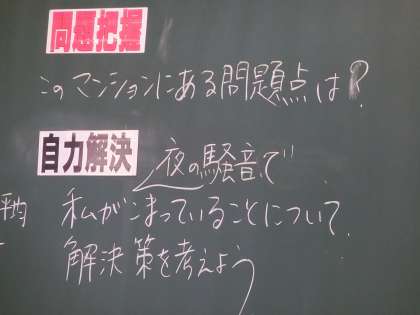 問題把握
このマンションにある問題点は?
自力解決
夜の騒音で
私がこまっていることについて
解決策を考えよう
平均